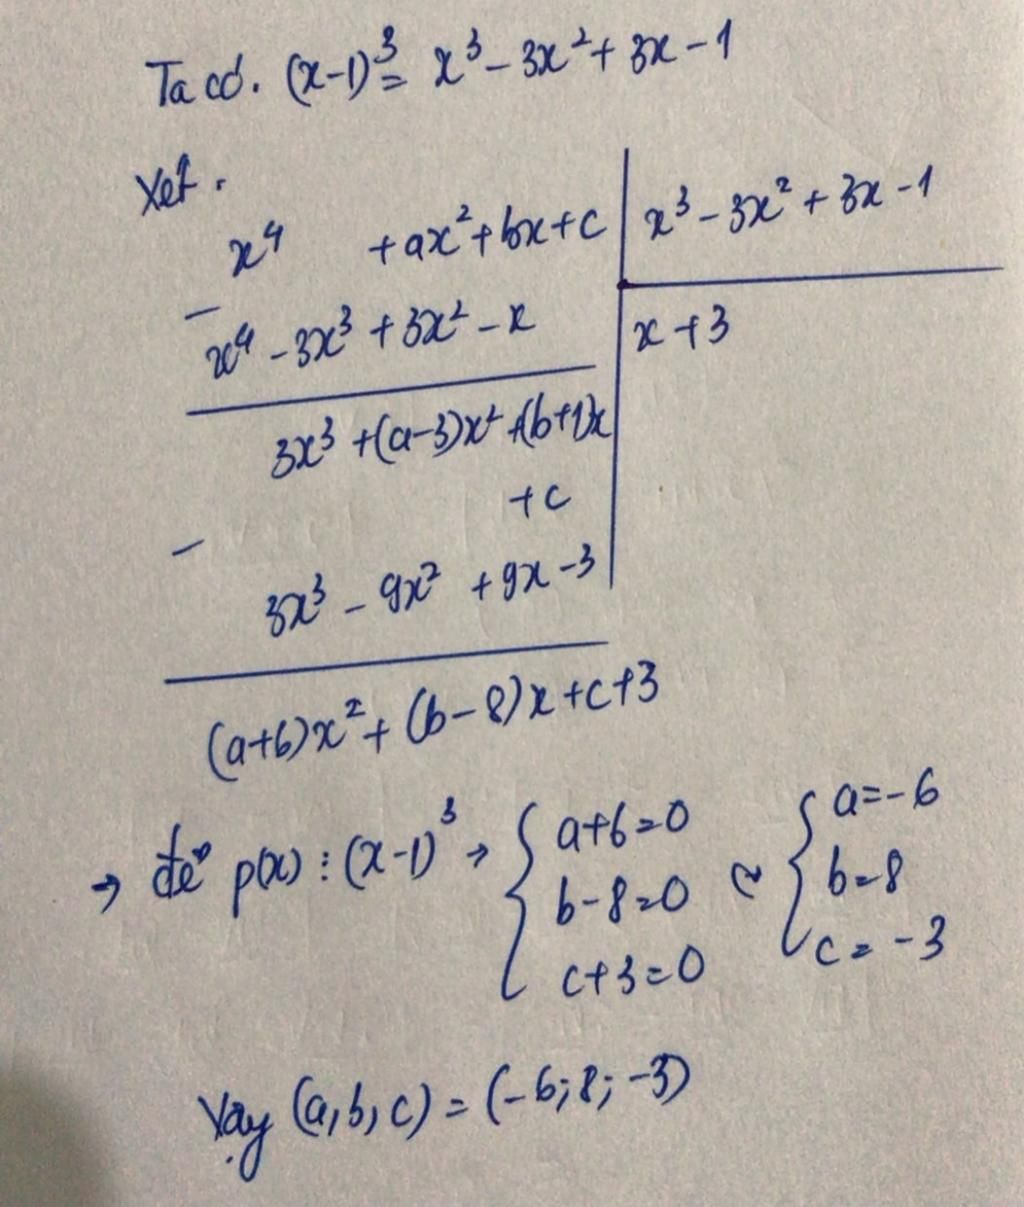 Ta có. (x-1)³ = x³ - 3x² + 3x - 1
Xét.
x⁴ + ax² + bx + c | x³ - 3x² + 3x - 1
- x⁴ - 3x³ + 3x² - x | x + 3
3x³ + (a-3)x² + (b+1)x
+ c
- 3x³ - 9x² + 9x - 3
(a+6)x² + (b-8)x + c + 3
→ để p(x) ⋮ (x-1)³ → { a+6=0 ; b-8=0 ; c+3=0 ⇔ { a=-6 ; b=8 ; c=-3
Vậy (a,b,c) = (-6;8;-3)